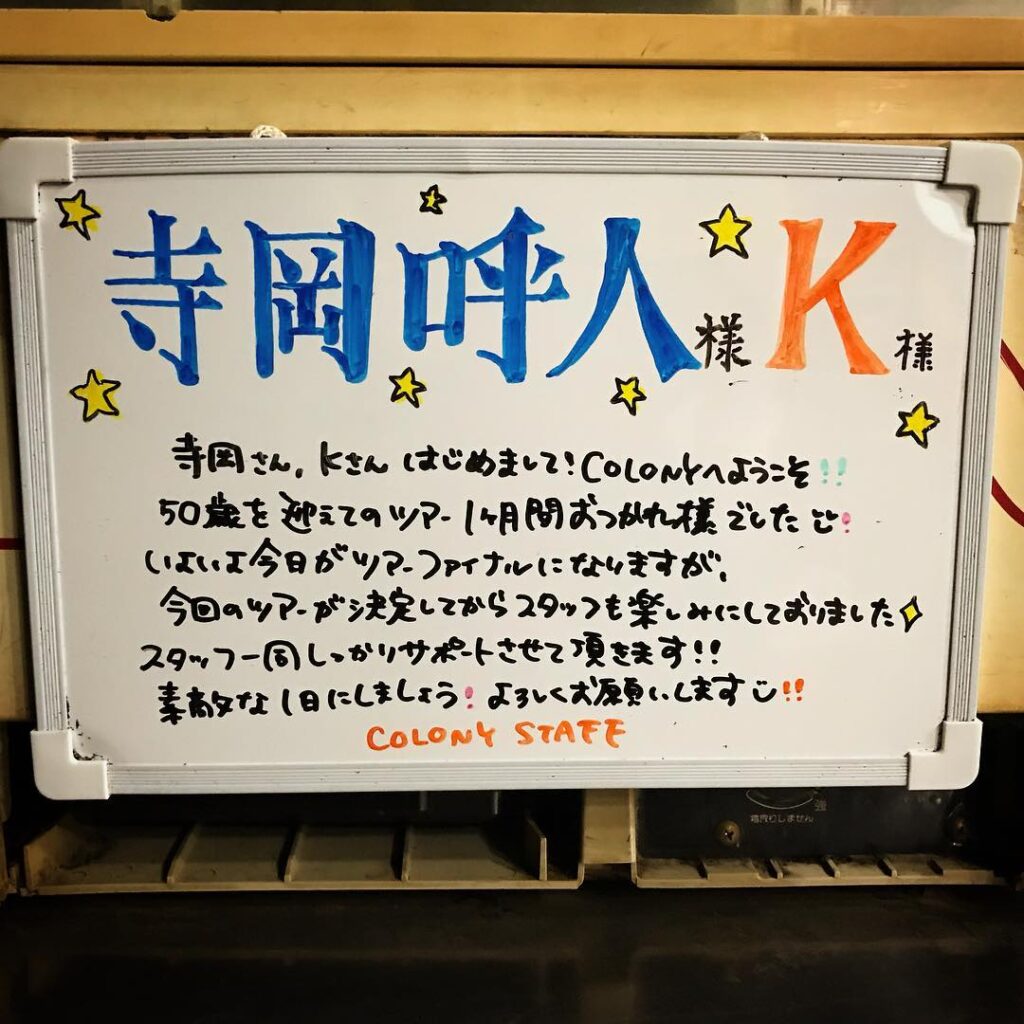 寺岡呼人様 K様
寺岡さん、Kさん はじめまして!COLONYへようこそ!!
50歳を迎えてのツアー1ヶ月間おつかれ様でした!
いよいよ今日がツアーファイナルになりますが、
今回のツアーが決定してからスタッフも楽しみにしておりました
スタッフ一同しっかりサポートさせて頂きます!!
素敵な1日にしましょう!よろしくお願いします!!
COLONY STAFF
強
霜取りしません